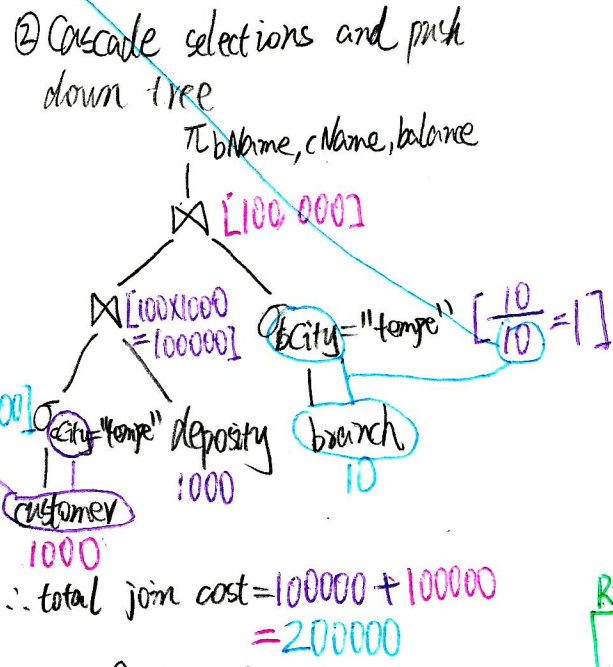 ② Cascade selections and push
down tree
π bName, cName, balance
⋈ [100,000]
⋈ [100×1000
=100000]
σ bCity="tempe" [10/10=1]
00] σ cCity="tempe" deposity branch
1000 10
customer
1000
∴ total join cost=100000+100000
=200000
R